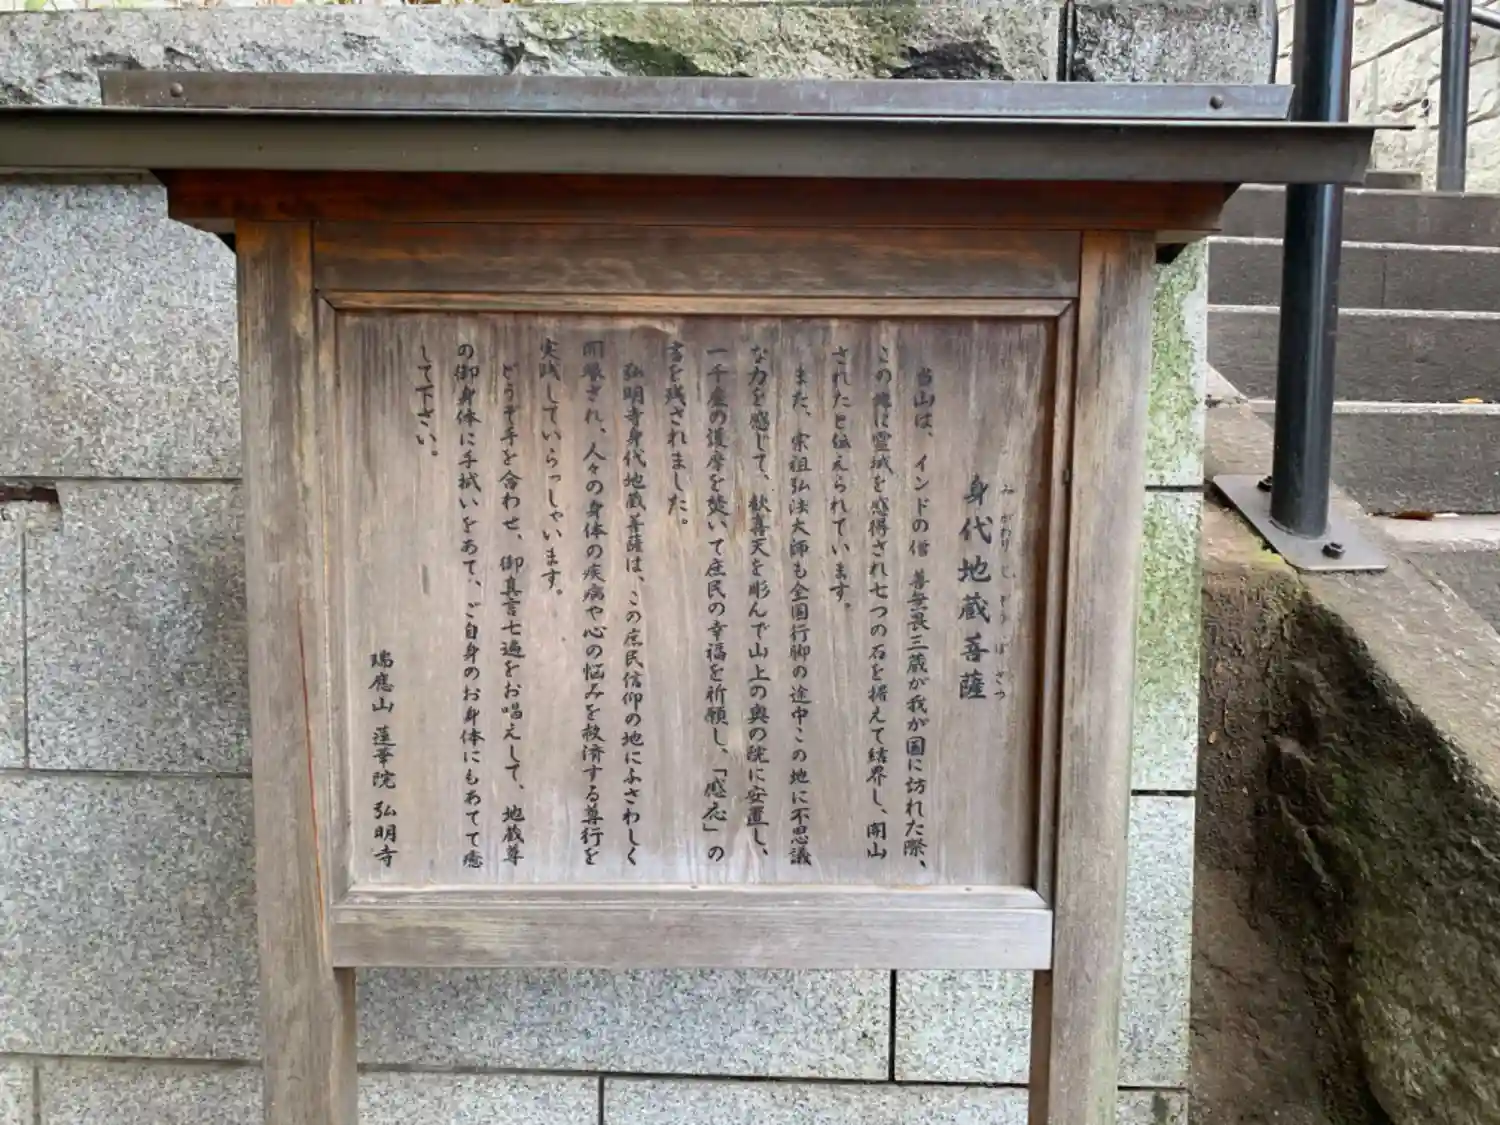 身代地蔵菩薩
みがわりじぞうぼさつ
当山は、インドの僧 善無畏三蔵が我が国に訪れた際、
この地に霊域を感得され七つの石を据えて結界し、開山
されたと伝えられています。
また、宗祖弘法大師も全国行脚の途中この地に不思議
な力を感じて、歓喜天を彫んで山上の奥の院に安置し、
一千座の護摩を焚いて庶民の幸福を祈願し、「感応」の
言を残されました。
弘明寺身代地蔵菩薩は、この庶民信仰の地にふさわしく
開眼され、人々の身体の疾病や心の悩みを救済する尊行を
実践していらっしゃいます。
どうぞ手を合わせ、御真言七遍をお唱えして、地蔵尊
の御身体に手拭いをあて、ご自身のお身体にもあてて癒
して下さい。
瑞應山 蓮華院 弘明寺